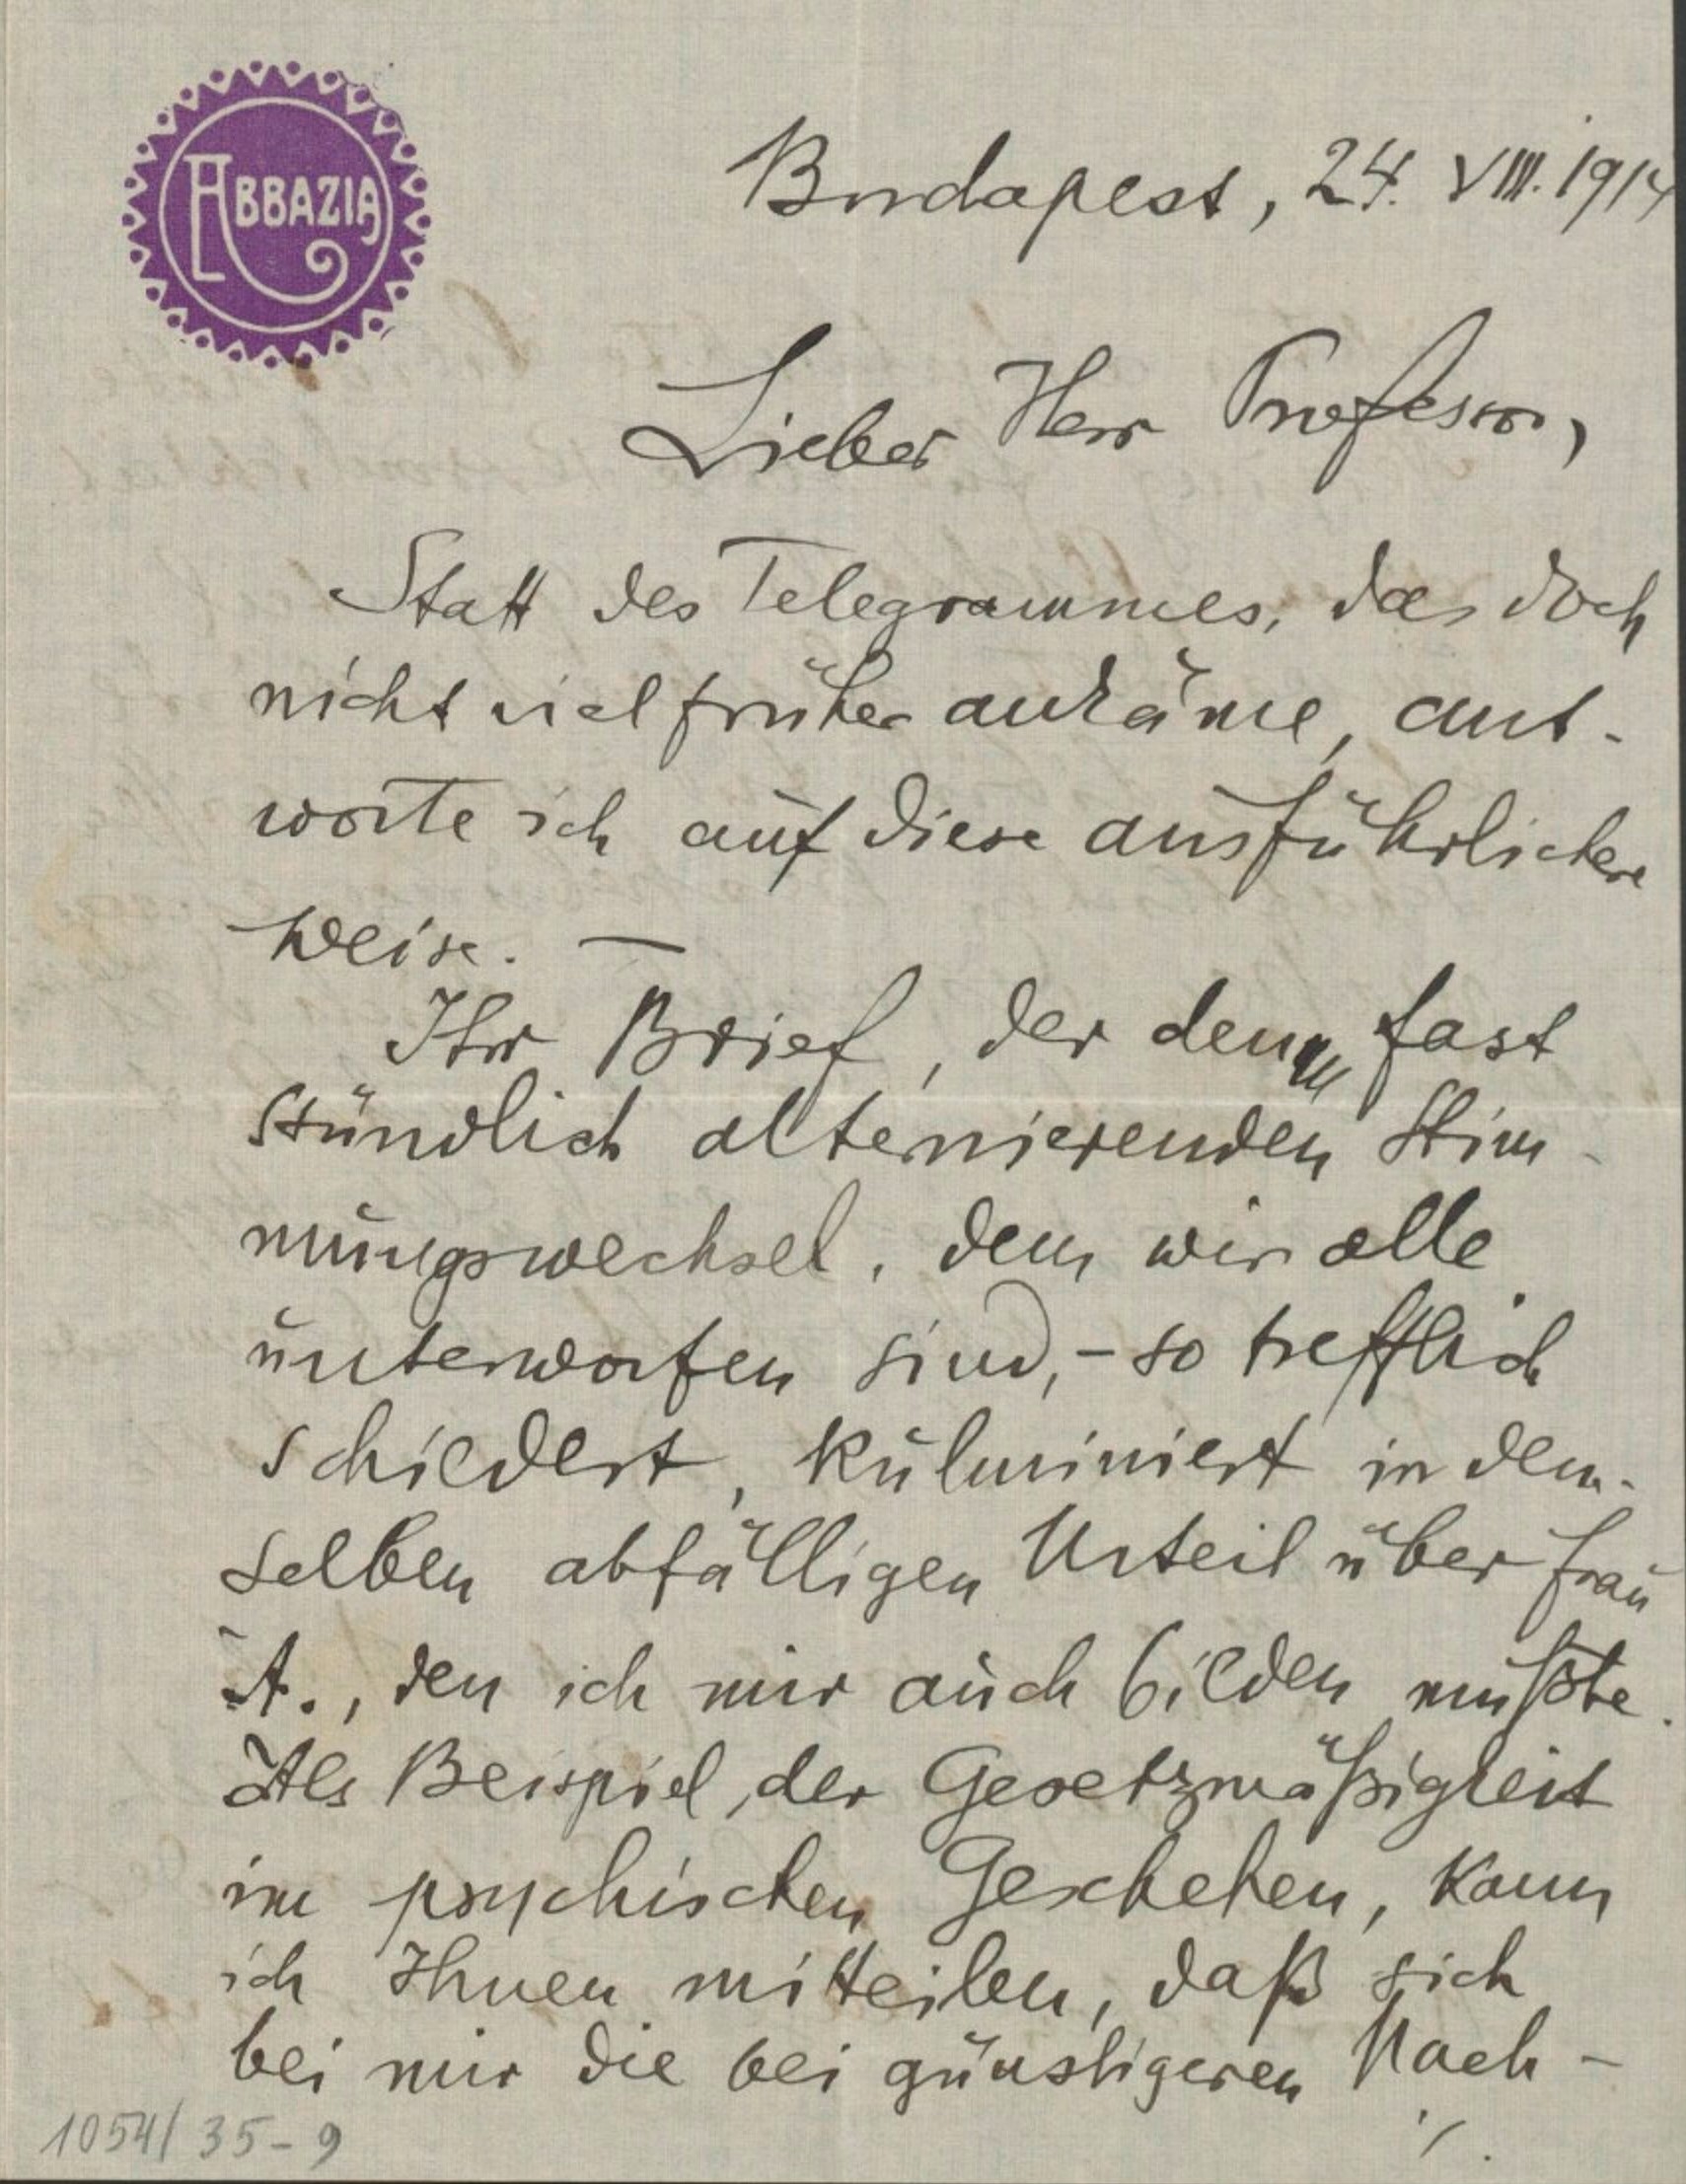 ABBAZIA
Budapest, 24. VIII. 1914
Lieber Herr Professor,
Statt des Telegrammes, das doch
nicht viel früher ankäme, ant-
worte ich auf diese ausführlichere
Weise. —
Ihr Brief, der den fast
stündlich alternierenden Stim-
mungswechsel, dem wir alle
unterworfen sind, - so trefflich
schildert, kulminiert in dem-
selben abfälligen Urteil über Frau
A., den ich mir auch bilden mußte.
Als Beispiel, der Gesetzmäßigkeit
im psychischen Geschehen, kann
ich Ihnen mitteilen, daß sich
bei mir die bei günstigeren Nach-
./.
1054/35-9